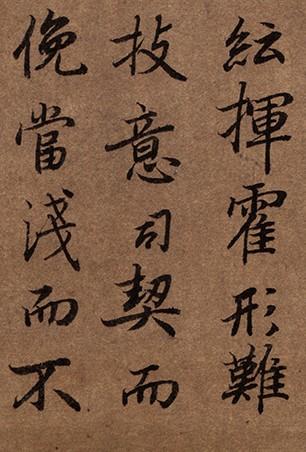 紜揮霍形難
技意司契而
俛當淺而不